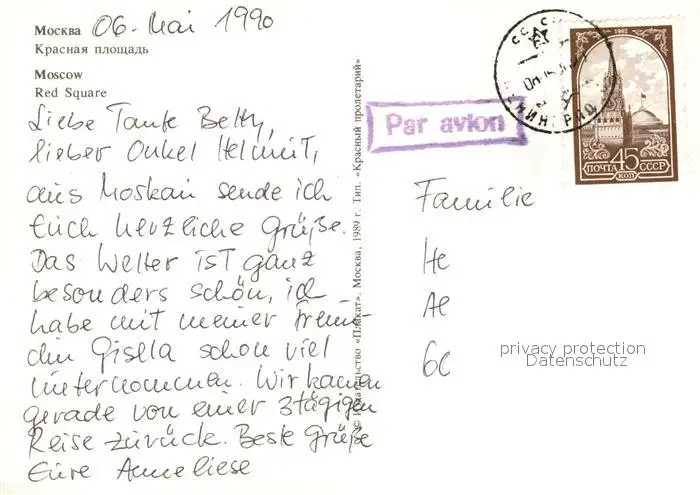 Москва 06. Mai 1990
Красная площадь
Moscow
Red Square
Liebe Tante Betty,
lieber Onkel Helmut,
aus Moskau sende ich
Euch herzliche Grüße.
Das Wetter ist ganz
besonders schön, ich
habe mit meiner Freun-
din Gisella schon viel
unternommen. Wir kamen
gerade von einer 3tägigen
Reise zurück. Beste Grüße
Eure Anneliese
© Издательство «Плакат». Москва, 1989 г. Тип. «Красный пролетарий»
Par avion
1982
ПОЧТА 45 СССР
КОП
Familie
He
Ae
6c
privacy protection
Datenschutz